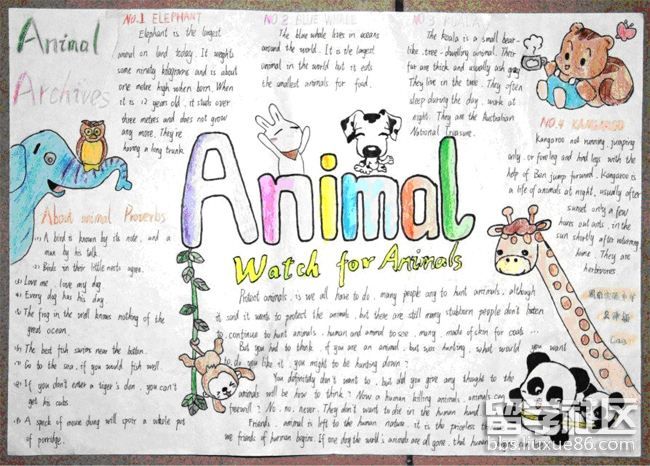 Animal
Archives
NO.1 ELEPHANT
Elephant is the largest
animal on land today. It weights
some ninety kilograms and is about
one metre high when born. When
it is 12 years old, it stads over
three meters and does not grow
any more. They're
having a long trunk.
NO.2 BLUE WHALE
The blue whale lives in oceans
around the world. It is the largest
animal in the world but it eats
the smallest animals for food.
NO.3
The koala is a small bear-
like, tree-dwelling animal. Their
fur are thick and usually ash gray.
They live in the tree. They often
sleep during the day, work at
night. They are the Australian
National Treasure.
NO.4 KANGAROO
Kangaroo not running, jumping
only, or foreleg and hind legs with the
help of jump forward. Kangaroo is
a life of animals at night, usually after
sunset only a few
hours out ants in the
sun shortly after returning
home. They are
herbivores
Animal
Watch for Animals
About animal Proverbs
(1) A bird is known by its note, and a
man by his talk.
(2) Birds in their little nests agree.
(3) Love me, love my dog.
(4) Every dog has his day.
(5) The frog in the well knows nothing of the
great ocean.
(6) The best fish swims near the bottom.
(7) Go to the sea, if you would fish well.
(8) If you don't enter a tiger's den, you can't
get his cubs.
(9) A speck of mouse dung will spoil a whole pot
of porridge.
Protect animals, is we all have to do. many people any to hunt animals, although
it said it wants to protect the animals, but there are still many stubborn people don't listen
to, continue to hunt animals, human and animal to see. many, made of skin for coats ...
But you had to think: if you are an animal, but was hunting, what would you want
to do you like it, you might be hunting down?
You definitely don't want to, but did you give any thought to the
animals will be how to think? Now a human killing animals, animals can
farewell? No, no, never. They don't want to die in the human hand
Friends, animal is left to the human nature, it is the priceless
we friends of human begins. If one day the world's animals are all gone, that human
留学社区
bbs.liuxue86.com